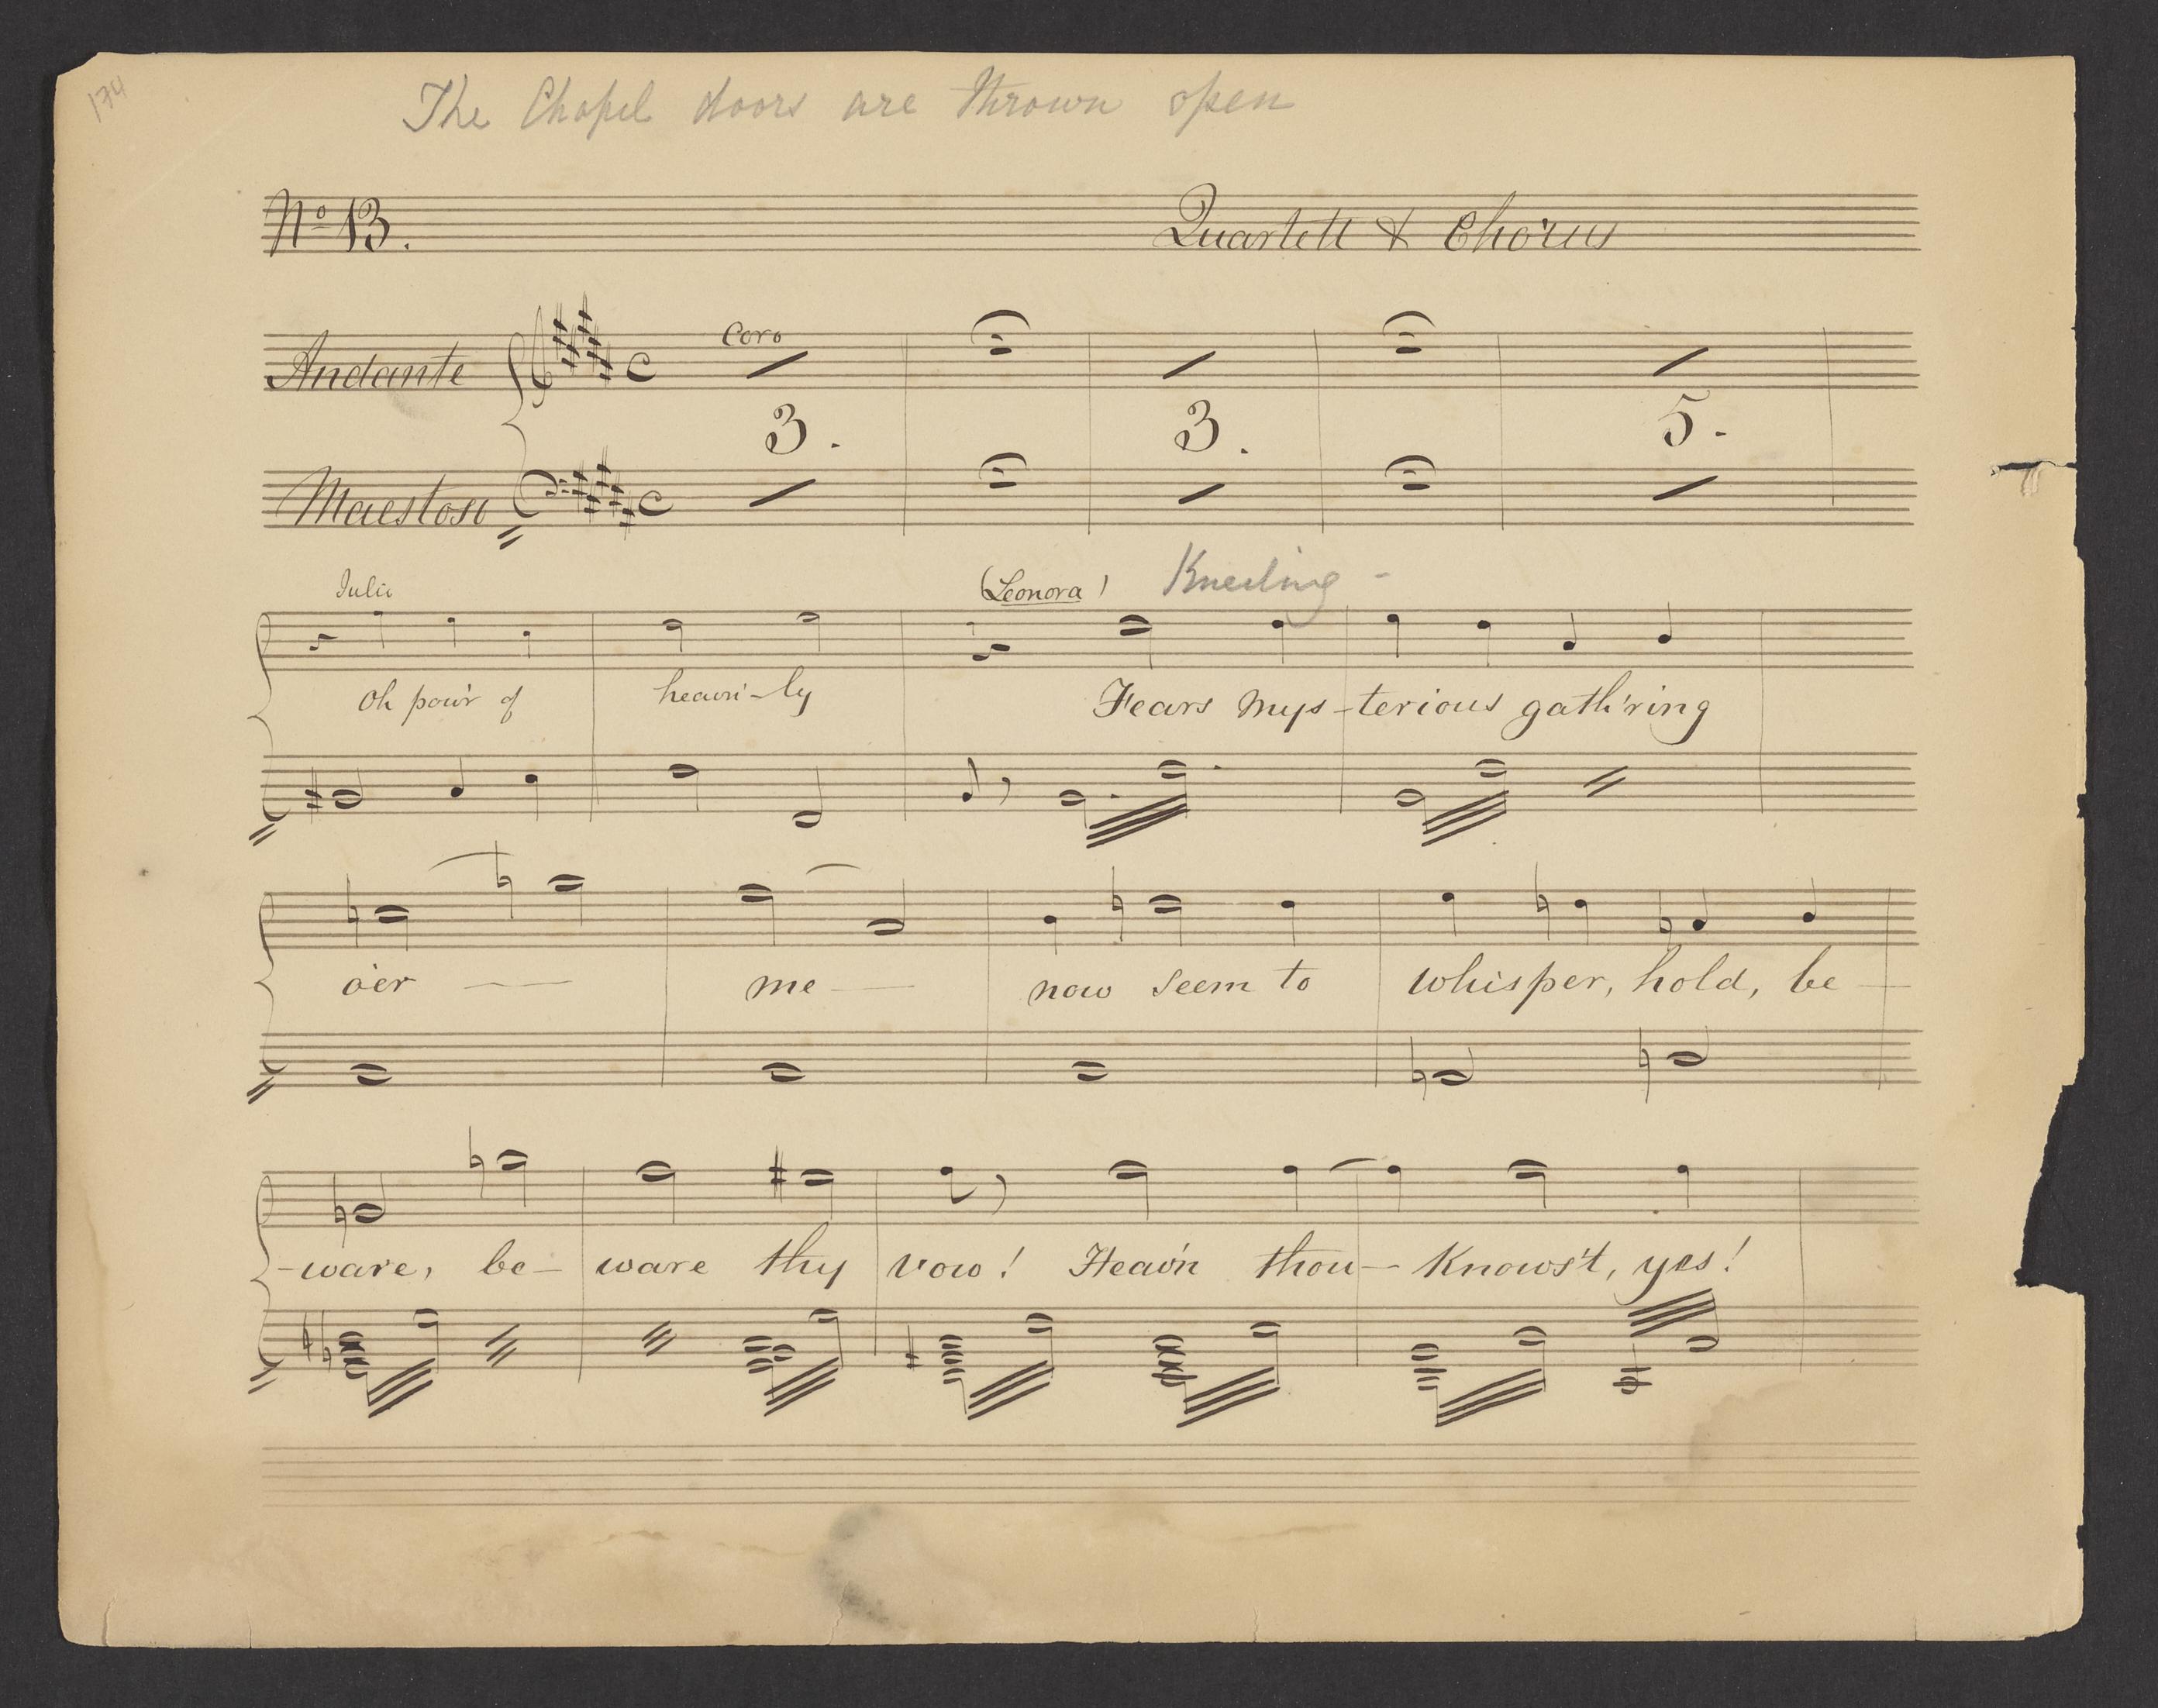 174
The Chapel doors are thrown open
No 13. Quartett & Chorus
Andante Coro
3. 3. 5.
Maestoso
Julia (Leonora) Kneeling -
Oh pow'r of heavn'-ly Fears mys-terious gath'ring
o'er me now seem to whisper, hold, be-
-ware, be- ware thy vow! Heav'n thou- Knows't, yes!